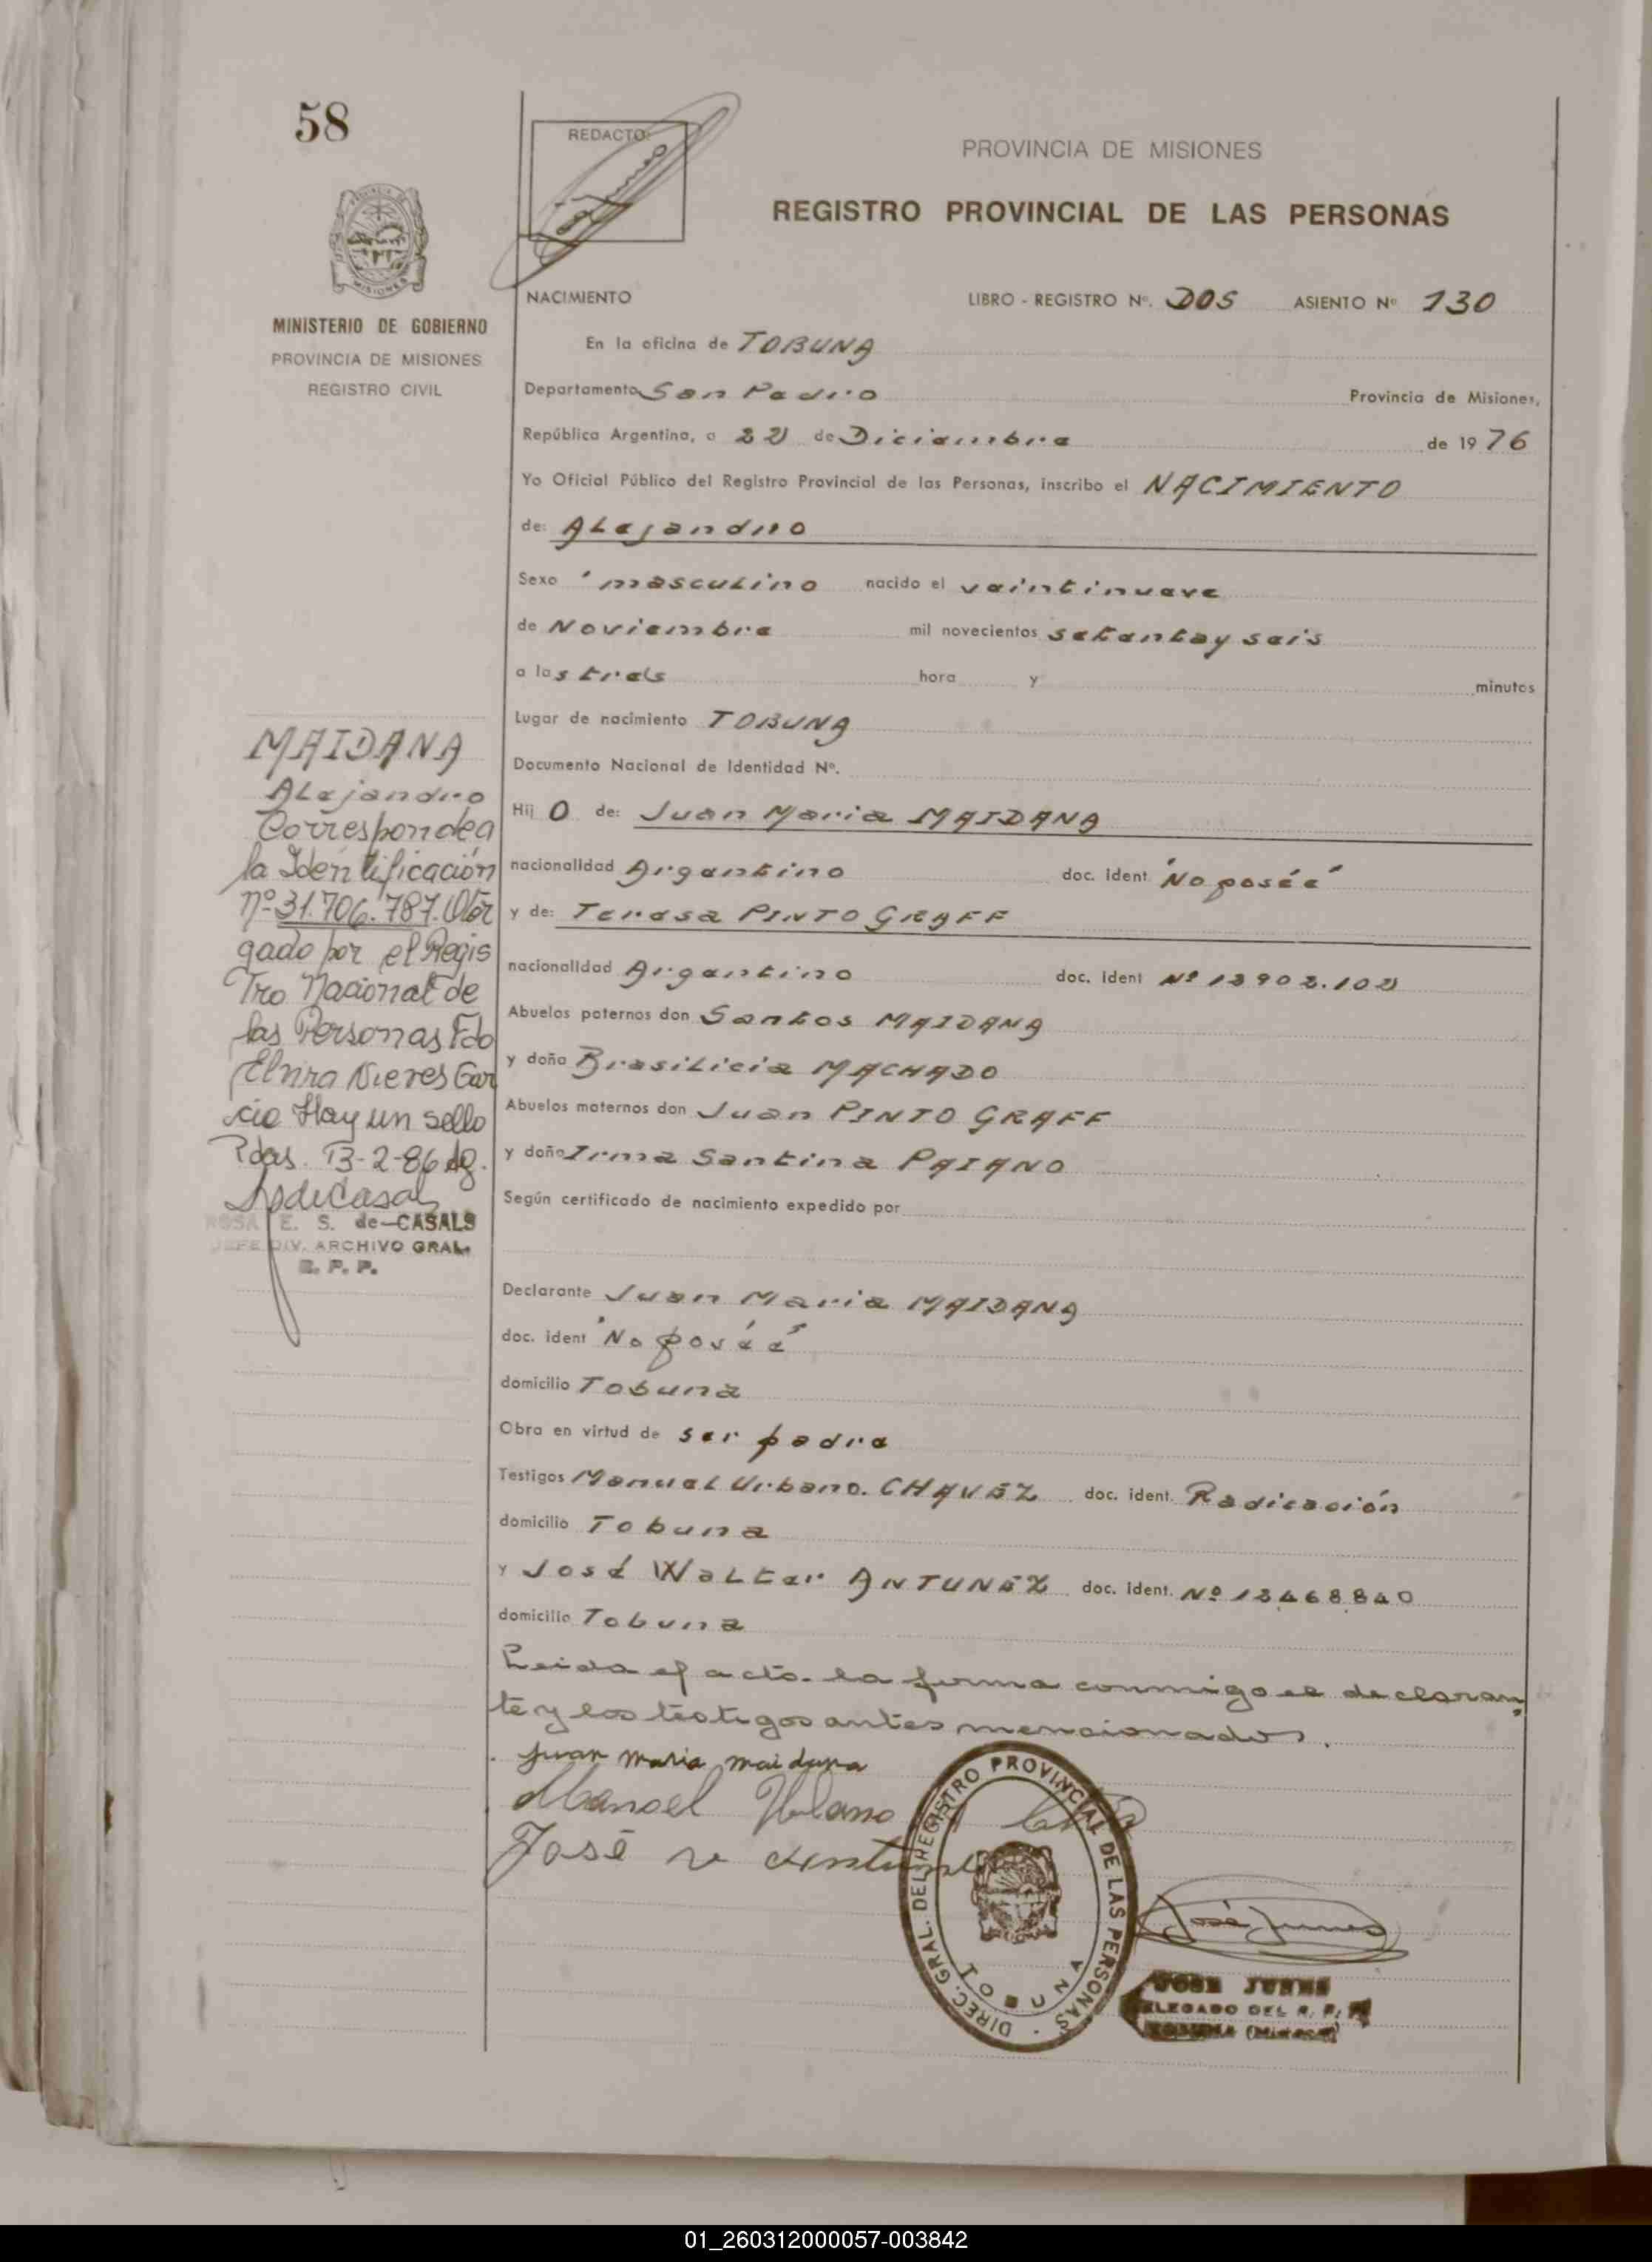 58
REDACTO:
PROVINCIA DE MISIONES
REGISTRO PROVINCIAL DE LAS PERSONAS
MISIONES
MINISTERIO DE GOBIERNO
PROVINCIA DE MISIONES
REGISTRO CIVIL
NACIMIENTO LIBRO - REGISTRO Nº. DOS ASIENTO Nº 130
En la oficina de TOBUNA
Departamento San Pedro Provincia de Misiones,
República Argentina, a 22 de Diciembre de 1976
Yo Oficial Público del Registro Provincial de las Personas, inscribo el NACIMIENTO
de: ALejandro
Sexo masculino nacido el veintinueve
de Noviembre mil novecientos setentay seis
a las tres hora y minutos
Lugar de nacimiento TOBUNA
Documento Nacional de Identidad Nº.
Hij O de: Juan Maria MAIDANA
nacionalidad Argentino doc. ident. "No poséé"
y de: Teresa PINTO GRAFF
nacionalidad Argentino doc. ident Nº 13902.102
Abuelos paternos don Santos MAIDANA
y doña Brasilicia MACHADO
Abuelos maternos don Juan PINTO GRAFF
y doña Irma Santina PAIANO
Según certificado de nacimiento expedido por
Declarante Juan Maria MAIDANA
doc. ident "No poséé"
domicilio Tobuna
Obra en virtud de ser padre
Testigos Manuel Urbano. CHAVEZ doc. ident. Radicación
domicilio Tobuna
y José Walter ANTUNEZ doc. ident. Nº 13468840
domicilio Tobuna
Leida el acto la firma conmigo el declaran
te y los testigos antes mencionados.
Juan maria maidana
Manoel
José
MAIDANA
ALejandro
Corresponde a
la Identificación
nº 31.706.787. Otor
gado por el Regis
tro Nacional de
las Personas Fdo
Elvira Nieves Gar
cia Hay un sello
Pdas. 13-2-86
ROSA E. S. de CASALS
JEFE DIV. ARCHIVO GRAL.
R. P. P.
DIREC. GRAL. DEL REGISTRO PROVINCIAL DE LAS PERSONAS
TOBUNA
JOSE JUNES
DELEGADO DEL R. P. P.
TOBUNA (Misiones)
01_260312000057-003842